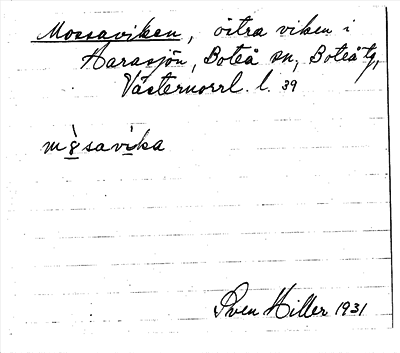 Mossaviken, östra viken i
Harasjön, Boteå sn, Boteå tg,
Västernorrl. l. 39
m8̀savika
Sven Hiller 1931